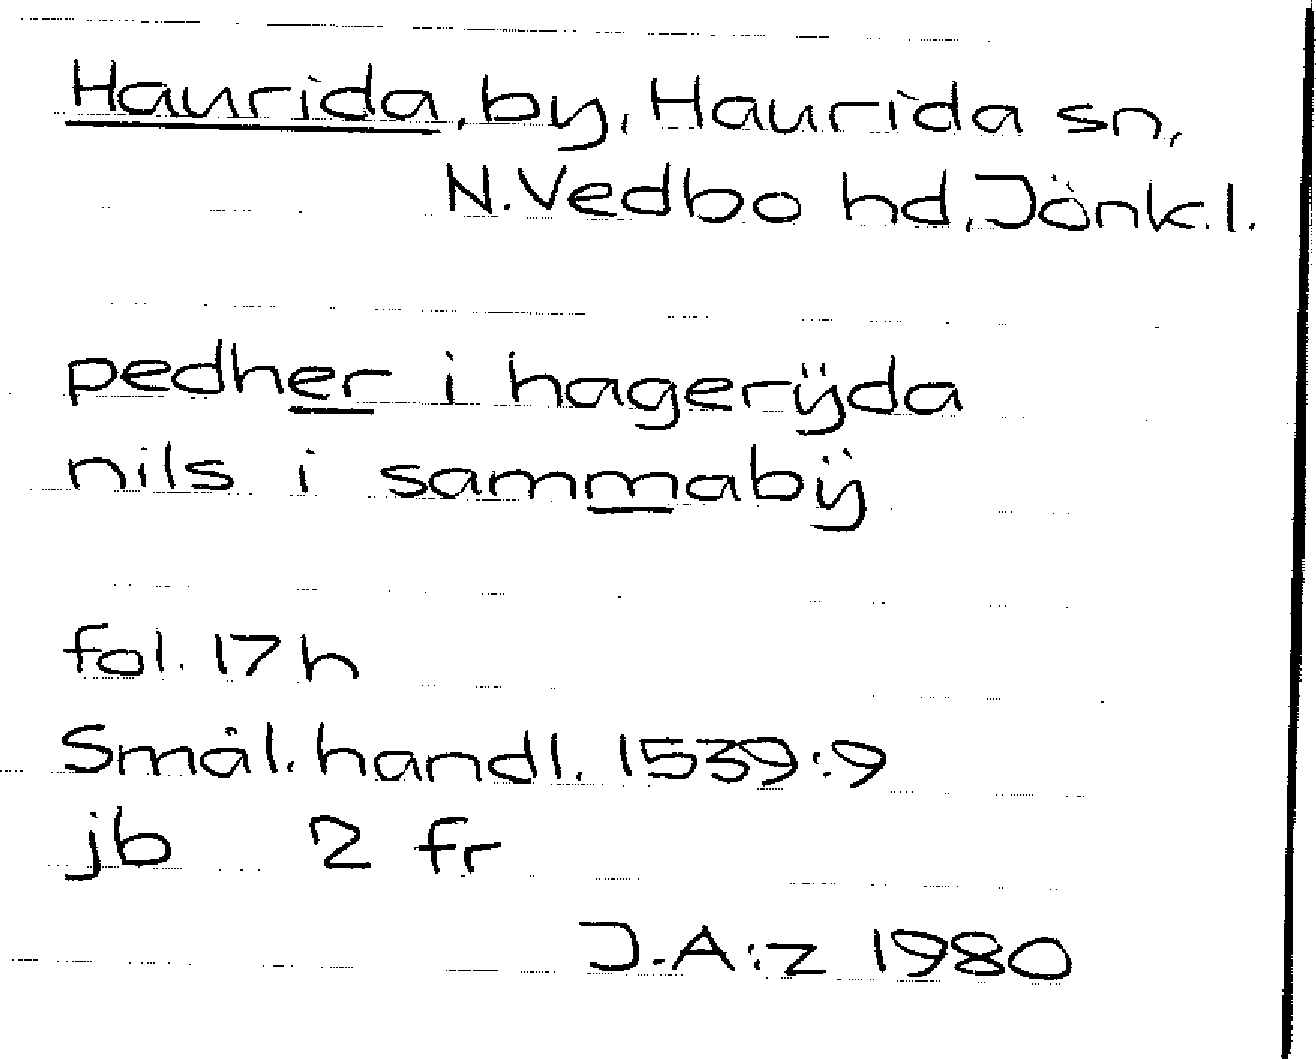 Haurida, by, Haurida sn,
N. Vedbo hd, Jönk. l.
pedher i hagerÿda
nils i sammabÿ
fol. 17 h
Smål. handl. 1539:9
jb 2 fr
J.A:z 1980